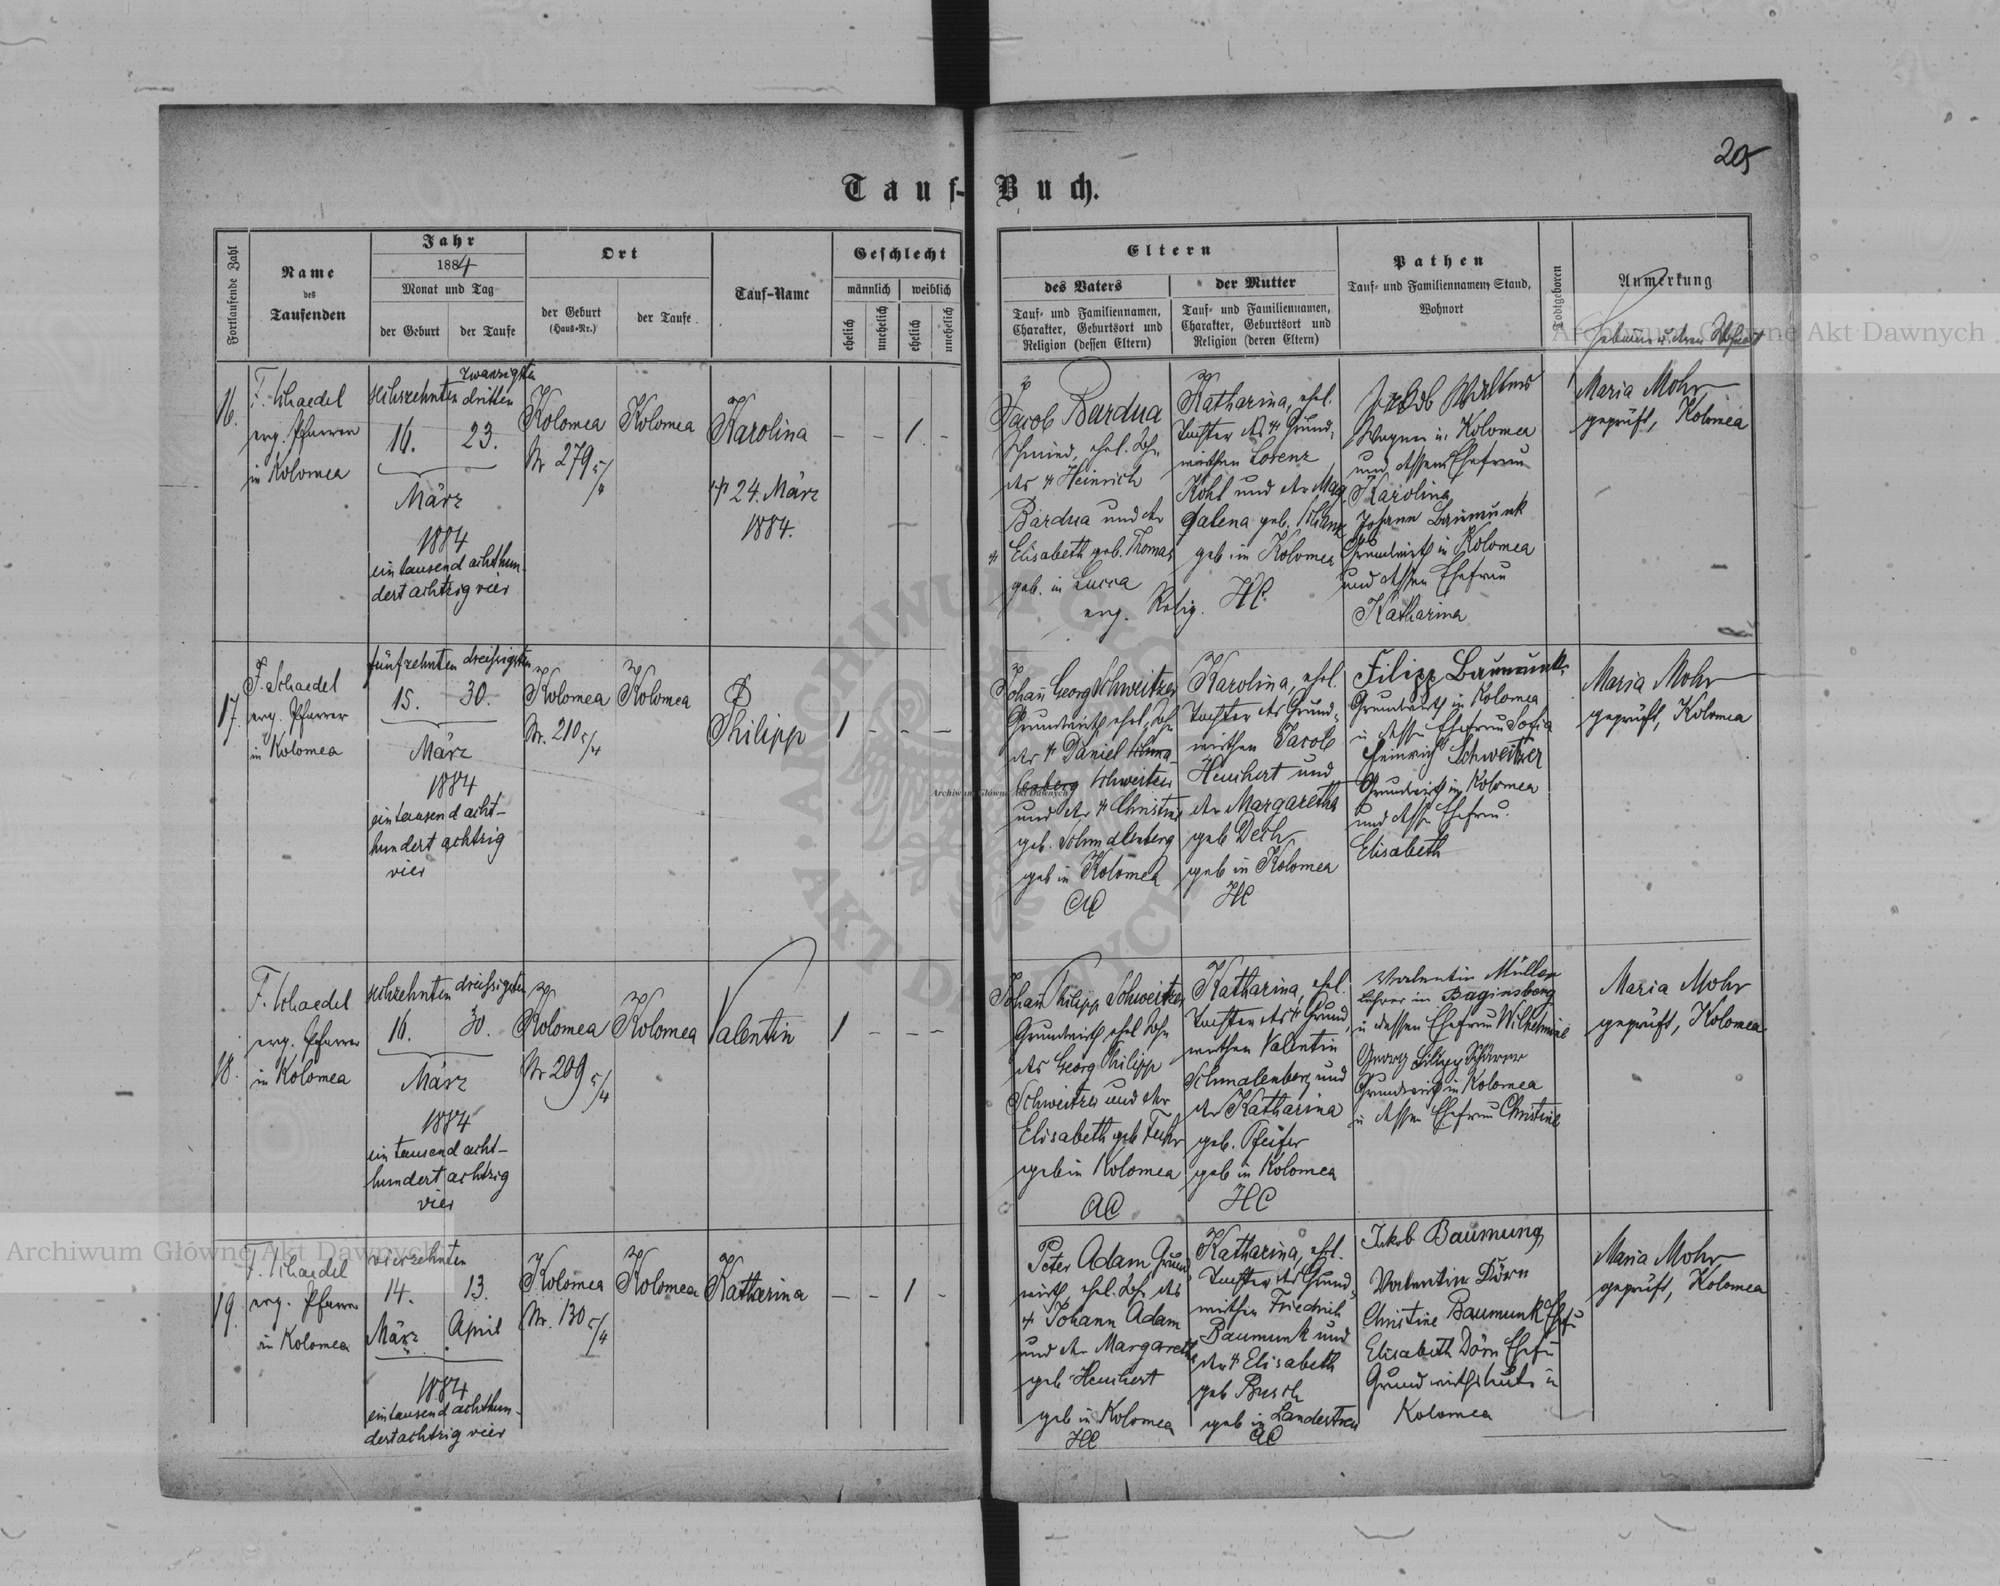 205
Tauf-Buch.
Fortlaufende Zahl
Name
des
Taufenden
Jahr
1884
Monat und Tag
der Geburt
der Taufe
Ort
der Geburt
(Haus-Nr.)
der Taufe
Tauf-Name
Geschlecht
männlich
weiblich
ehelich
unehelich
ehelich
unehelich
Eltern
des Vaters
Tauf- und Familiennamen,
Charakter, Geburtsort und
Religion (dessen Eltern)
der Mutter
Tauf- und Familiennamen,
Charakter, Geburtsort und
Religion (deren Eltern)
Pathen
Tauf- und Familiennamen, Stand,
Wohnort
Todtgeboren
Anmerkung
16.
F. Schaedel
evg. Pfarrer
in Kolomea
sechszehnten
16.
zwanzigsten
dritten
23.
März
1884
ein tausend achthun-
dert achtzig vier
Kolomea
Nr. 279 5/4
Kolomea
Karolina
† 24. März
1884.
— – 1 –
Jacob Bardua
Schmied, ehel. Sohn
des † Heinrich
Bardua und der
† Elisabeth geb. Thomas
geb. in Lucca
evg. Relig.
Katharina, ehel.
Tochter des † Grund-
wirthen Lorenz
Kohl und der Mag
dalena geb.
geb in Kolomea
HC.
Jakob Walters
Wagner in Kolomea
und dessen Ehefrau
Karolina
Johann Baumunk
Grundwirth in Kolomea
und dessen Ehefrau
Katharina
Maria Mohr
geprüft, Kolomea
17.
F. Schaedel
evg. Pfarrer
in Kolomea
fünfzehnten
15.
dreissigsten
30.
März
1884
ein tausend acht-
hundert achtzig
vier
Kolomea
Nr. 210 5/4
Kolomea
Philipp
1 – – –
Johan Georg Schweitzer
Grundwirth, ehel. Sohn
der † Daniel Schma-
lenberg Schweitzer
und der † Christine
geb. Schmalenberg
geb in Kolomea
AC
Karolina, ehel.
Tochter des Grund-
wirthen Jacob
Heuchert und
der Margaretha
geb Dech
geb in Kolomea
HC
Filipp Baumunk
Grundwirth in Kolomea
u dessen Ehefrau Sofia
Heinrich Schweitzer
Grundwirth in Kolomea
und dessen Ehefrau.
Elisabeth
Maria Mohr
geprüft, Kolomea
18.
F. Schaedel
evg. Pfarrer
in Kolomea
sechzehnten
16.
dreissigsten
30.
März
1884
ein tausend acht-
hundert achtzig
vier
Kolomea
Nr 209 5/4
Kolomea
Valentin
1 – – –
Johan Philipp Schweitzer
Grundwirth ehel Sohn
des Georg Philipp
Schweitzer und der
Elisabeth geb Fuhr
geb in Kolomea
AC
Katharina, ehel.
Tochter des † Grund-
wirthen Valentin
Schmalenberg und
der Katharina
geb. Pfeifer
geb in Kolomea
HC
Valentin Müller
Lehrer in Baginsberg
u dessen Ehefrau Wilhelmine
Georg
Grundwirth in Kolomea
u dessen Ehefrau Christine
Maria Mohr
geprüft, Kolomea
19.
F. Schaedel
evg. Pfarrer
in Kolomea
vierzehnten
14.
März
13.
April
1884
ein tausend achthun-
dert achtzig vier
Kolomea
Nr. 130 5/4
Kolomea
Katharina
— – 1 –
Peter Adam, Grund-
wirth, ehel. Sohn des
† Johann Adam
und der Margarethe
geb Heuchert
geb in Kolomea
HC
Katharina, ehel.
Tochter des Grund-
wirthen Friedrich
Baumunk und
der † Elisabeth
geb Busch
geb in Landestreu
AC
Jakob Baumung
Valentin Dörn
Christine Baumunk Ehefr
Elisabeth Dörn Ehefr
Grundwirthsleute in
Kolomea
Maria Mohr
geprüft, Kolomea
Archiwum Główne Akt Dawnych
Archiwum Główne Akt Dawnych
Archiwum Główne Akt Dawnych